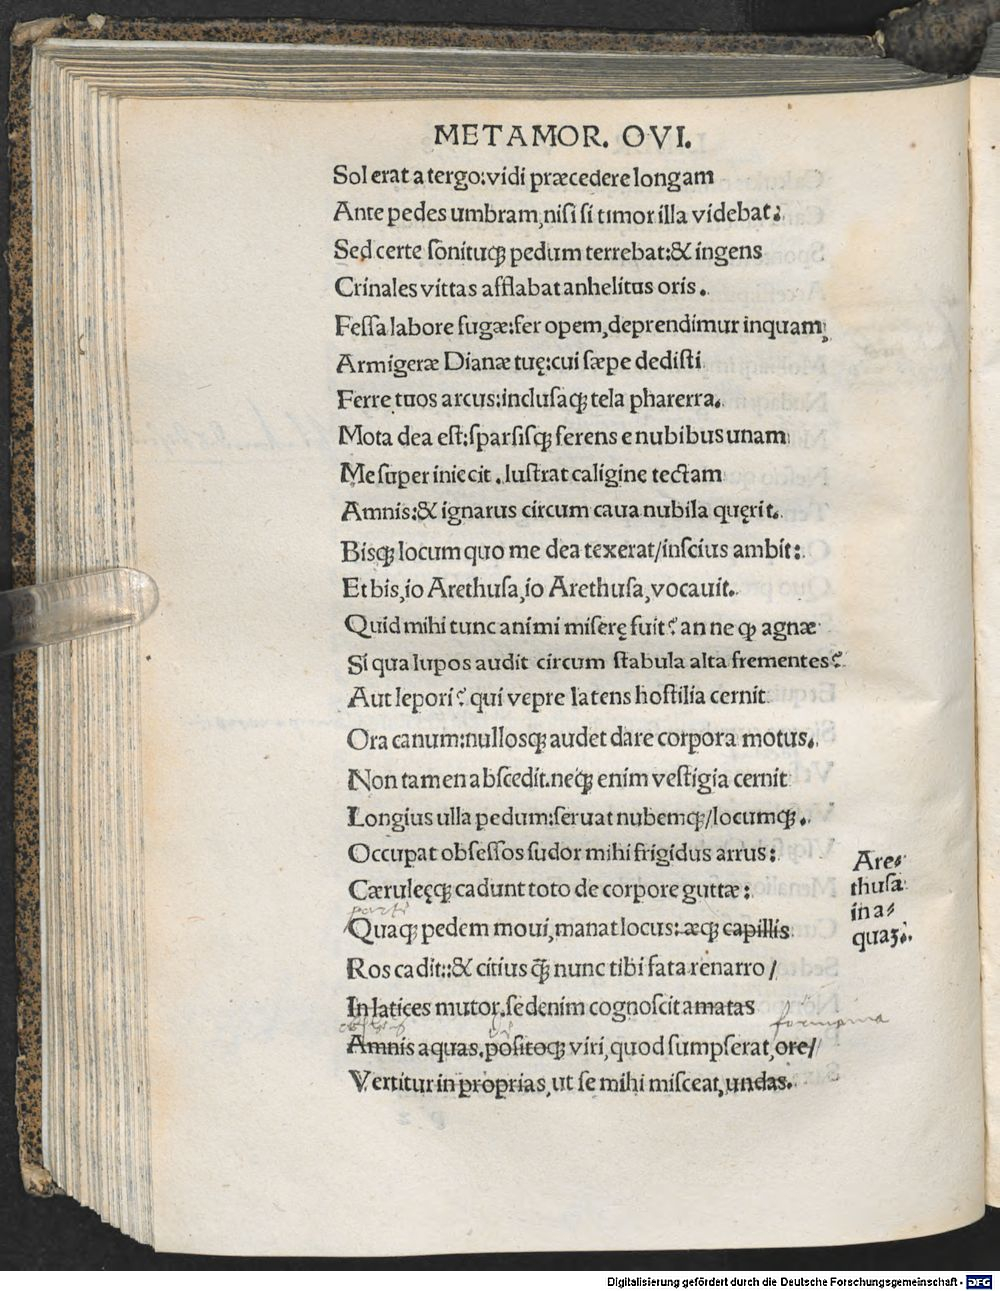 METAMOR. OVI.
Sol erat a tergo: vidi præcedere longam
Ante pedes umbram, nisi si timor illa videbat:
Sed certe sonitusꝗ pedum terrebat: & ingens
Crinales vittas afflabat anhelitus oris.
Fessa labore fugæ: fer opem, deprendimur inquam,
Armigeræ Dianæ tuę: cui sæpe dedisti
Ferre tuos arcus: inclusaꝗ tela pharetra.
Mota dea est: sparsisꝗ ferens e nubibus unam
Me super iniecit. lustrat caligine tectam
Amnis: & ignarus circum caua nubila quęrit.
Bisꝗ locum quo me dea texerat/ inscius ambit:
Et bis, io Arethusa, io Arethusa, vocauit.
Quid mihi tunc animi miserę fuit? an ne ꝙ agnæ
Si qua lupos audit circum stabula alta frementes?
Aut lepori? qui vepre latens hostilia cernit
Ora canum: nullosꝗ audet dare corpora motus.
Non tamen abscedit. neꝗ enim vestigia cernit
Longius ulla pedum: seruat nubemꝗ/ locumꝗ.
Occupat obsessos sudor mihi frigidus artus:
Cæruleęꝗ cadunt toto de corpore guttæ:
Quaꝗ pedem moui, manat locus: æꝗ capillis
Ros cadit: & citius ꝗ̄ nunc tibi fata renarro/
In latices mutor. sed enim cognoscit amatas
Amnis aquas. positoꝗ viri, quod sumpserat, ore/
Vertitur in proprias, ut se mihi misceat, undas.
Are⸗
thusa
in a⸗
quaꝫ.
Digitalisierung gefördert durch die Deutsche Forschungsgemeinschaft - DFG